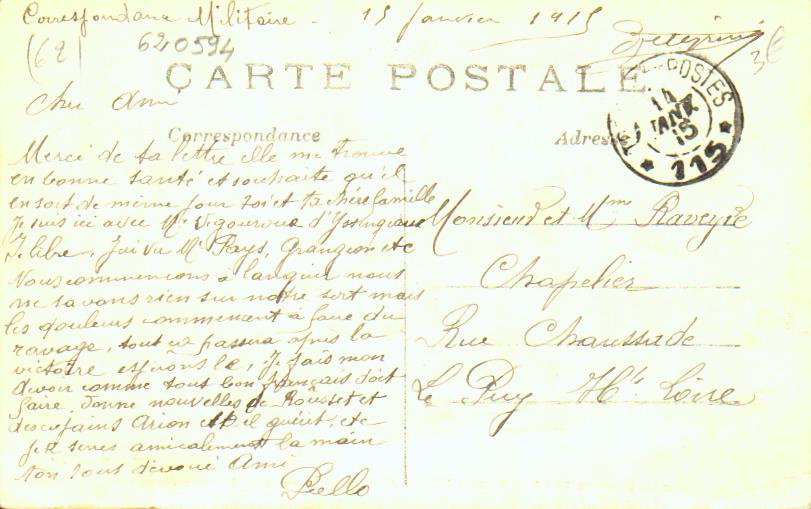 Correspondance Militaire - 15 Janvier 1915
(62)
620594
3€
CARTE POSTALE
POSTES
14
JANV
15
* 115 *
Cher Ami
Correspondance
Adresse
Merci de ta lettre elle me trouve
en bonne santé et souhaite qu'il
en soit de même pour toi et ta chère famille
Je suis ici avec Mr Vigouroux d'Yssingeaux
J'ai vu Mr Pays, Grangeon etc
Nous commençons à languir nous
ne savons rien sur notre sort mais
les douleurs commencent à faire du
ravage, tout ça passera après la
victoire espérons le, Je fais mon
devoir comme tout bon français doit
faire. Donne nouvelles de Rousset et
des copains Arion est il guérit, etc
Je te serres amicalement la main
Ton tout dévoué Ami
Piello
Monsieur et Mme Raveyre
Chapelier
Rue Chaussade
Le Puy Hte Loire